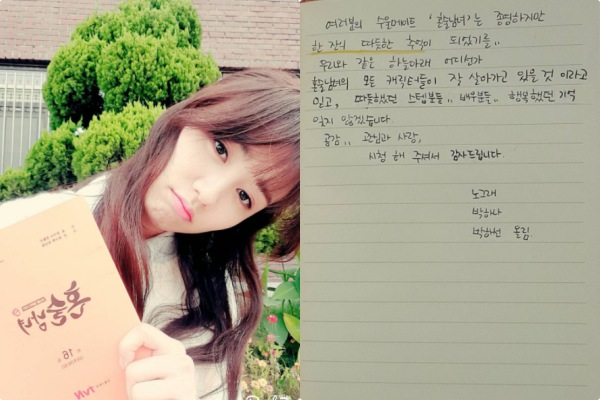 혼술남녀
16
tvN
여러분의 수울메이트 '혼술남녀'는 종영하지만
한 잔의 따듯한 추억이 되셨기를..
우리와 같은 하늘아래 어디선가
혼술남녀의 모든 캐릭터들이 잘 살아가고 있을 것 이라고
믿고, 따듯했던 스텝분들.. 배우분들.. 행복했던 기억
잊지 않겠습니다.
공감.. 관심과 사랑,
시청 해 주셔서 감사드립니다.
노그래
박하나
박하선 올림